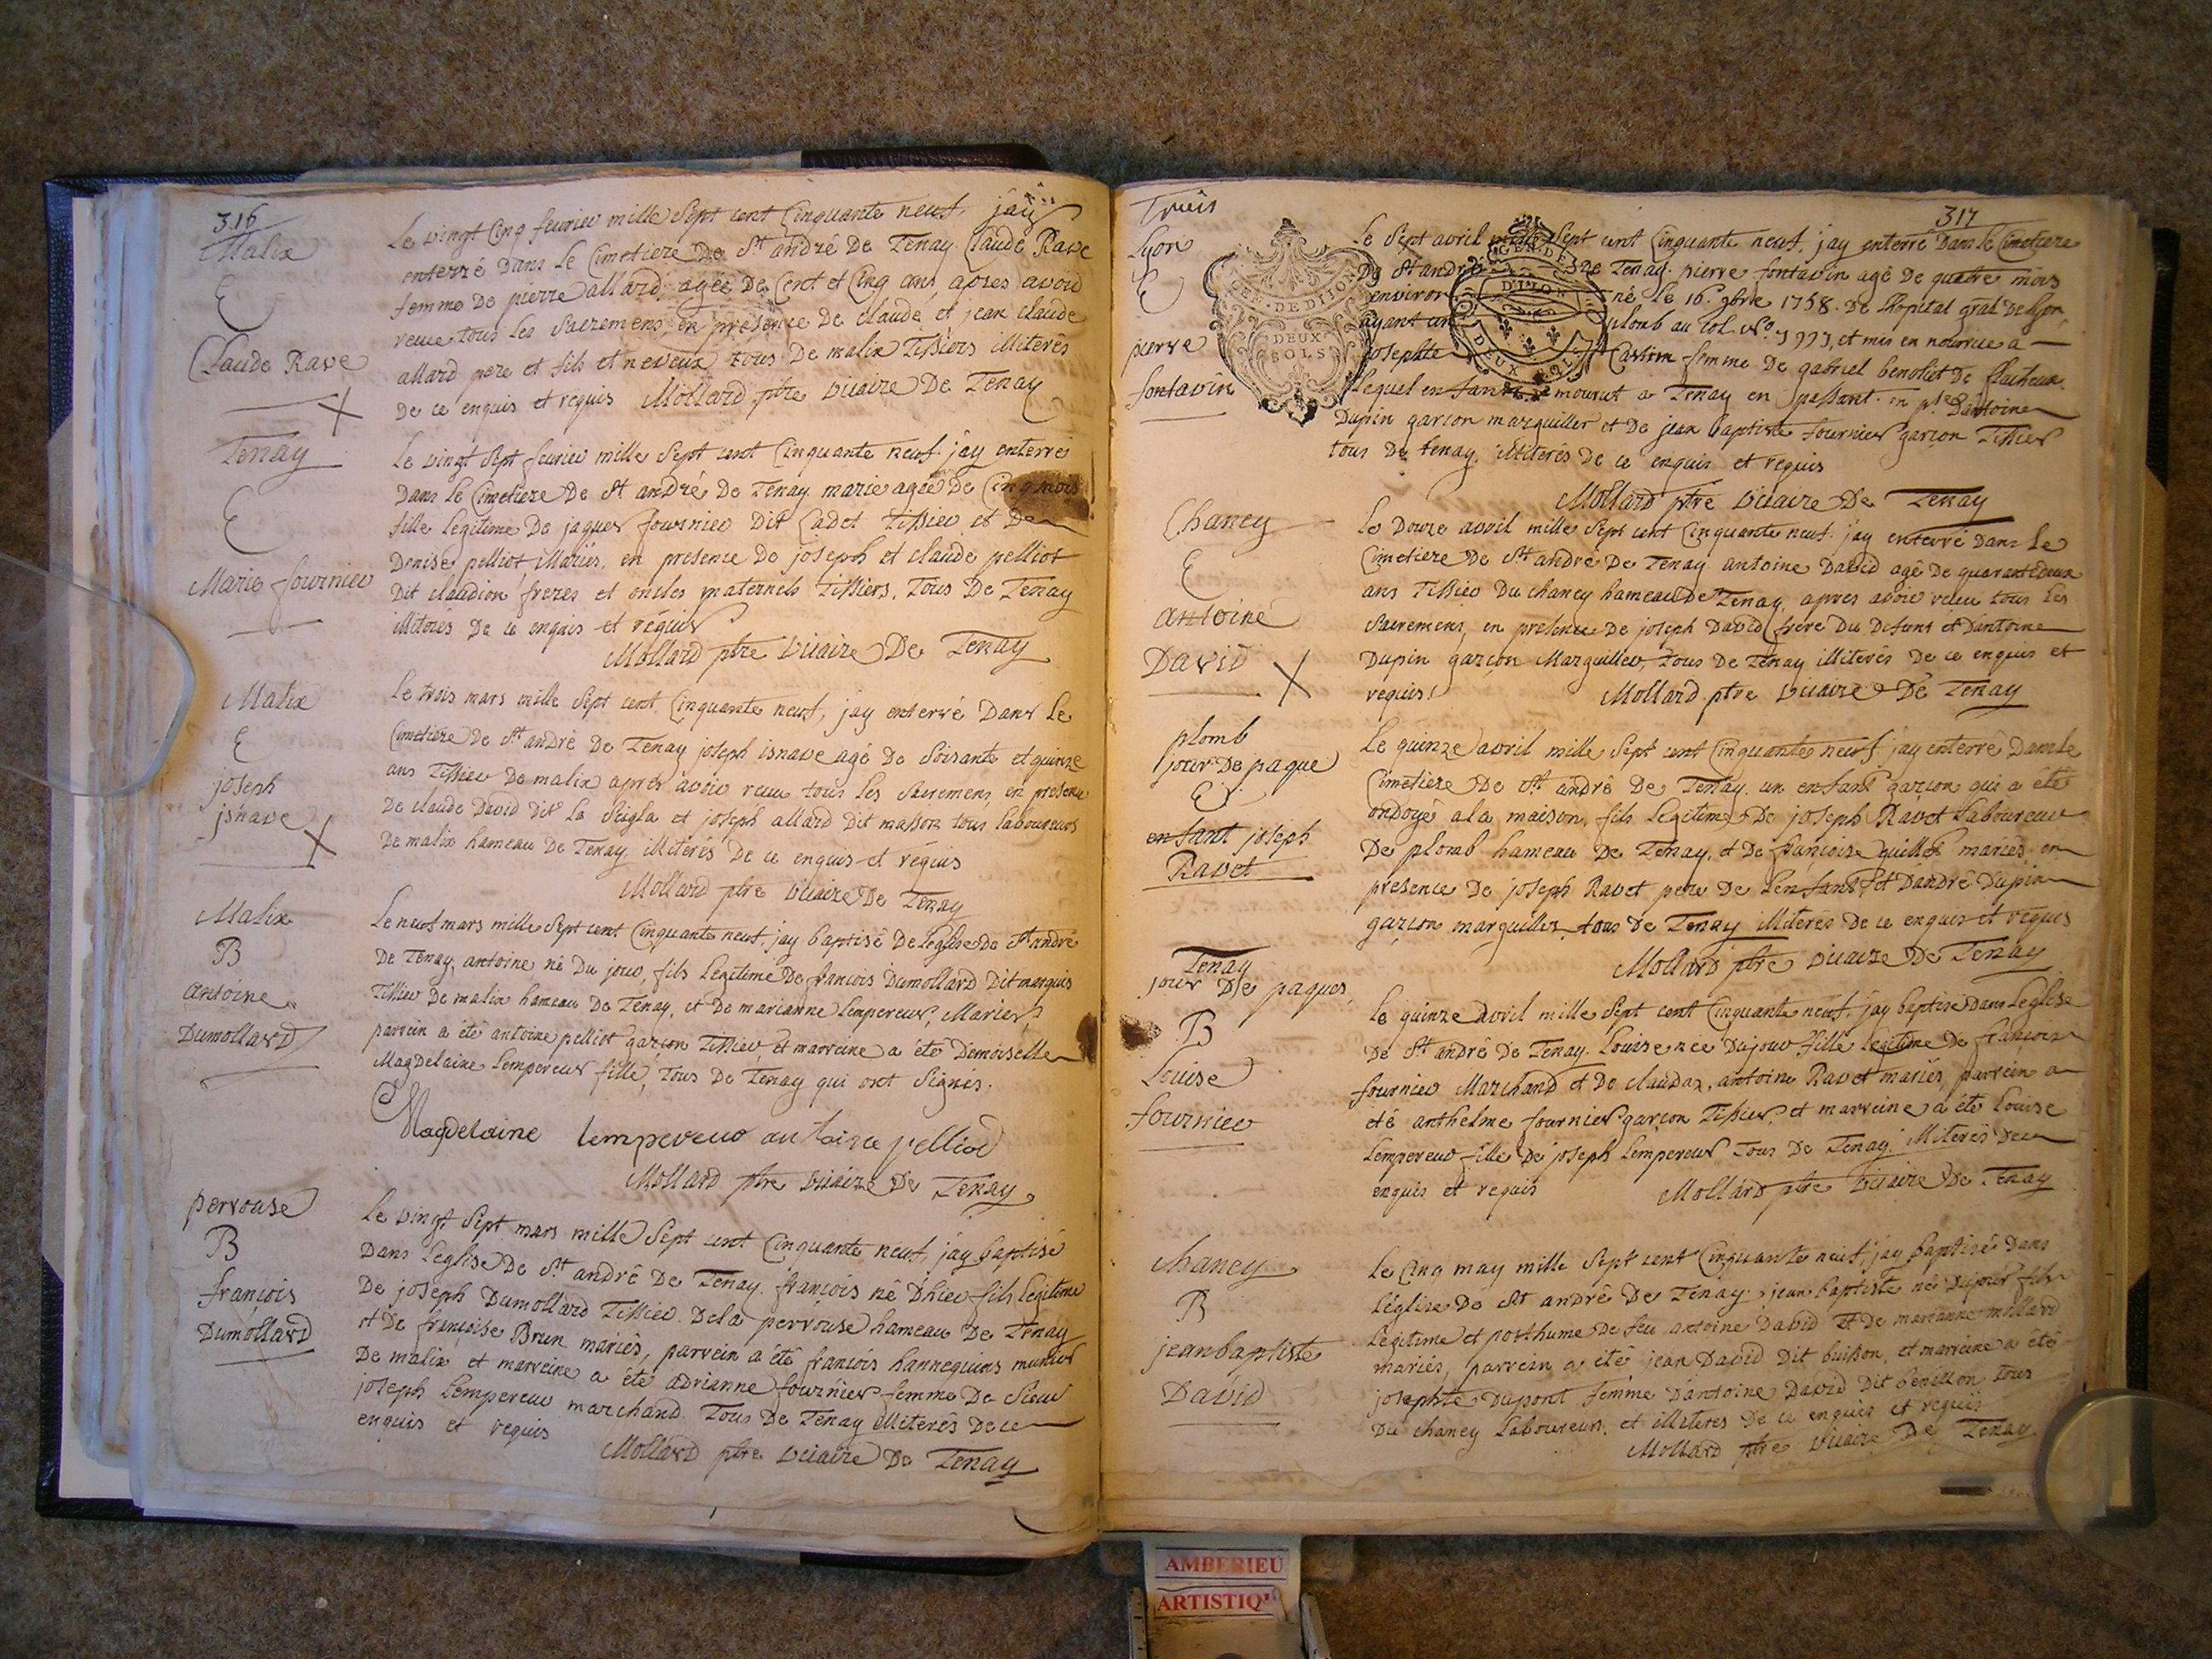 316
Malix
E
Claude Rave
Le vingt Cinq feurier mille Sept cent Cinquante neuf, jay
enterré Dans Le Cimetiere De St andré De Tenay Claude Rave
femme De pierre allard, agée De Cent et Cinq ans, apres avoir
receue tous Les Sacremens, en presence De claude et jean claude
allard pere et fils et neveux tous De malix Tissiers illiterés
De ce enquis et requis Mollard ptre vicaire De Tenay
Tenay
E
Marie fournier
Le vingt Sept feurier mille Sept cent Cinquante neuf. jay enterré
Dans Le Cimetiere De St andré De Tenay marie agée De Cinq mois
fille Legitime De jaques fournier Dit Cadet Tissier et De
Denise pelliot Mariés, en presence De joseph et claude pelliot
Dit claudion freres et oncles maternels Tissiers, Tous De Tenay
illiterés De ce enquis et requis
Mollard ptre vicaire De Tenay
Malix
E
joseph
jsnave
Le trois mars mille Sept cent Cinquante neuf, jay enterré Dans Le
Cimetiere De St andré De Tenay joseph isnave agé De Soisante et quinze
ans Tissier De malix apres avoir receu tous Les Sacremens, en presence
De claude David Dit La Seigla et joseph allard Dit masson tous Laboureurs
De malix hameau De Tenay illiterés De ce enquis et requis
Mollard ptre vicaire De Tenay
Malix
B
antoine
Dumollard
Le neuf mars mille Sept cent Cinquante neuf, jay baptisé De Leglise De St andré
De Tenay, antoine né Du jour, fils Legitime De francois Dumollard Dit marquis
Tissier De malix hameau De Tenay, et De marianne Lempereur, Mariés,
parrein a été antoine pelliot garçon Tissier, et marreine a été Demoiselle
Magdelaine Lempereur fille, Tous De Tenay qui ont Signés.
Magdelaine lempereur antoine pelliod
Mollard ptre vicaire De Tenay
pervouse
B
françois
Dumollard
Le vingt Sept mars mille Sept cent Cinquante neuf, jay baptisé
Dans Leglise De St andré De Tenay. françois né Dhier fils Legitime
De joseph Dumollard Tissier Dela pervouse hameau De Tenay
et De françoise Brun mariés, parrein a été francois hannequins munier
De malix et marreine a été adrianne fournier femme De Sieur
joseph Lempereur marchand Tous De Tenay illiterés De ce
enquis et requis
Mollard ptre vicaire De Tenay
Truis
317
Lyon
E
pierre
fontavin
GEN. DE DIJON
DEUX
SOLS
GEN. DE
DIJON
DEUX
Le Sept avril mille Sept cent Cinquante neuf, jay enterré Dans Le Cimetiere
De St andré De Tenay. pierre fontavin agé De quatre mois
environ né Le 16. 9bre 1758. De Lhopital gral De Lyon
ayant un plomb au col No 1993, et mis en nourrice a
josephte Castion femme De gabriel benoist De
Lequel enfant mourut a Tenay en passant. en pce Dantoine
Dupin garcon marguiller et De jean baptiste fournier garçon Tissier
tous De Tenay. illiterés De ce enquis et requis
Mollard ptre vicaire De Tenay
Chaney
E
antoine
David
Le Douze avril mille Sept cent Cinquante neuf. jay enterré Dans Le
Cimetiere De St andré De Tenay antoine David agé De quarantedeux
ans Tissier Du chaney hameau De Tenay, apres avoir receu tous Les
Sacremens, en presence De joseph David frere Du Defunt et Dantoine
Dupin garçon Marguiller, Tous De Tenay illiterés De ce enquis et
requis. Mollard ptre vicaire De Tenay
plomb
jour De paque
E
enfant joseph
Ravet
Le quinze avril mille Sept cent Cinquante neuf jay enterré Dans Le
Cimetiere De St andré De Tenay un enfant garçon qui a été
ondoyé a la maison, fils Legitime De joseph Ravet Laboureur
De plomb hameau De Tenay, et De françoise quillot mariés, en
presence De joseph Ravet pere De Lenfant et Dandré Dupin
garçon marguiller, tous De Tenay illiterés De ce enquis et requis
Mollard ptre vicaire De Tenay
Tenay
jour De paques
B
Louise
fournier
Le quinze avril mille Sept cent Cinquante neuf, jay baptisé Dans Leglise
De St andré De Tenay. Louise née Du jour fille Legitime De françois
fournier Marchand et De claudaz, antoine Ravet mariés, parrein a
eté anthelme fournier garçon Tissier, et marreine a été Louise
Lempereur fille De joseph Lempereur Tous De Tenay. illiterés De ce
enquis et requis Mollard ptre vicaire De Tenay
chaney
B
jeanbaptiste
David
Le Cinq may mille Sept cent Cinquante neuf, jay baptisé Dans
Léglise De St andré De Tenay. jean baptiste né Du jour fils
Legitime et posthume De feu antoine David et De marianne mollard
mariés, parrein a été jean David Dit buisson, et marreine a été
josephte Dupont femme D'antoine David Dit benillon tous
Du chaney Laboureurs, et illiteres De ce enquis et requis
Mollard ptre vicaire De Tenay
AMBERIEU
ARTISTIQU